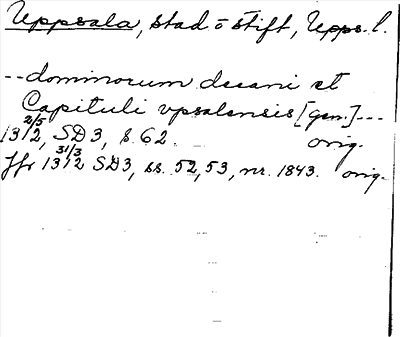 Uppsala, stad o stift, Upps. l.
-- dominorum decani et
Capituli vpsalensis [gen.] ---
1312 2/5, SD 3, s. 62. orig.
Jfr 1312 31/3 SD3, ss. 52, 53, nr. 1843. orig.